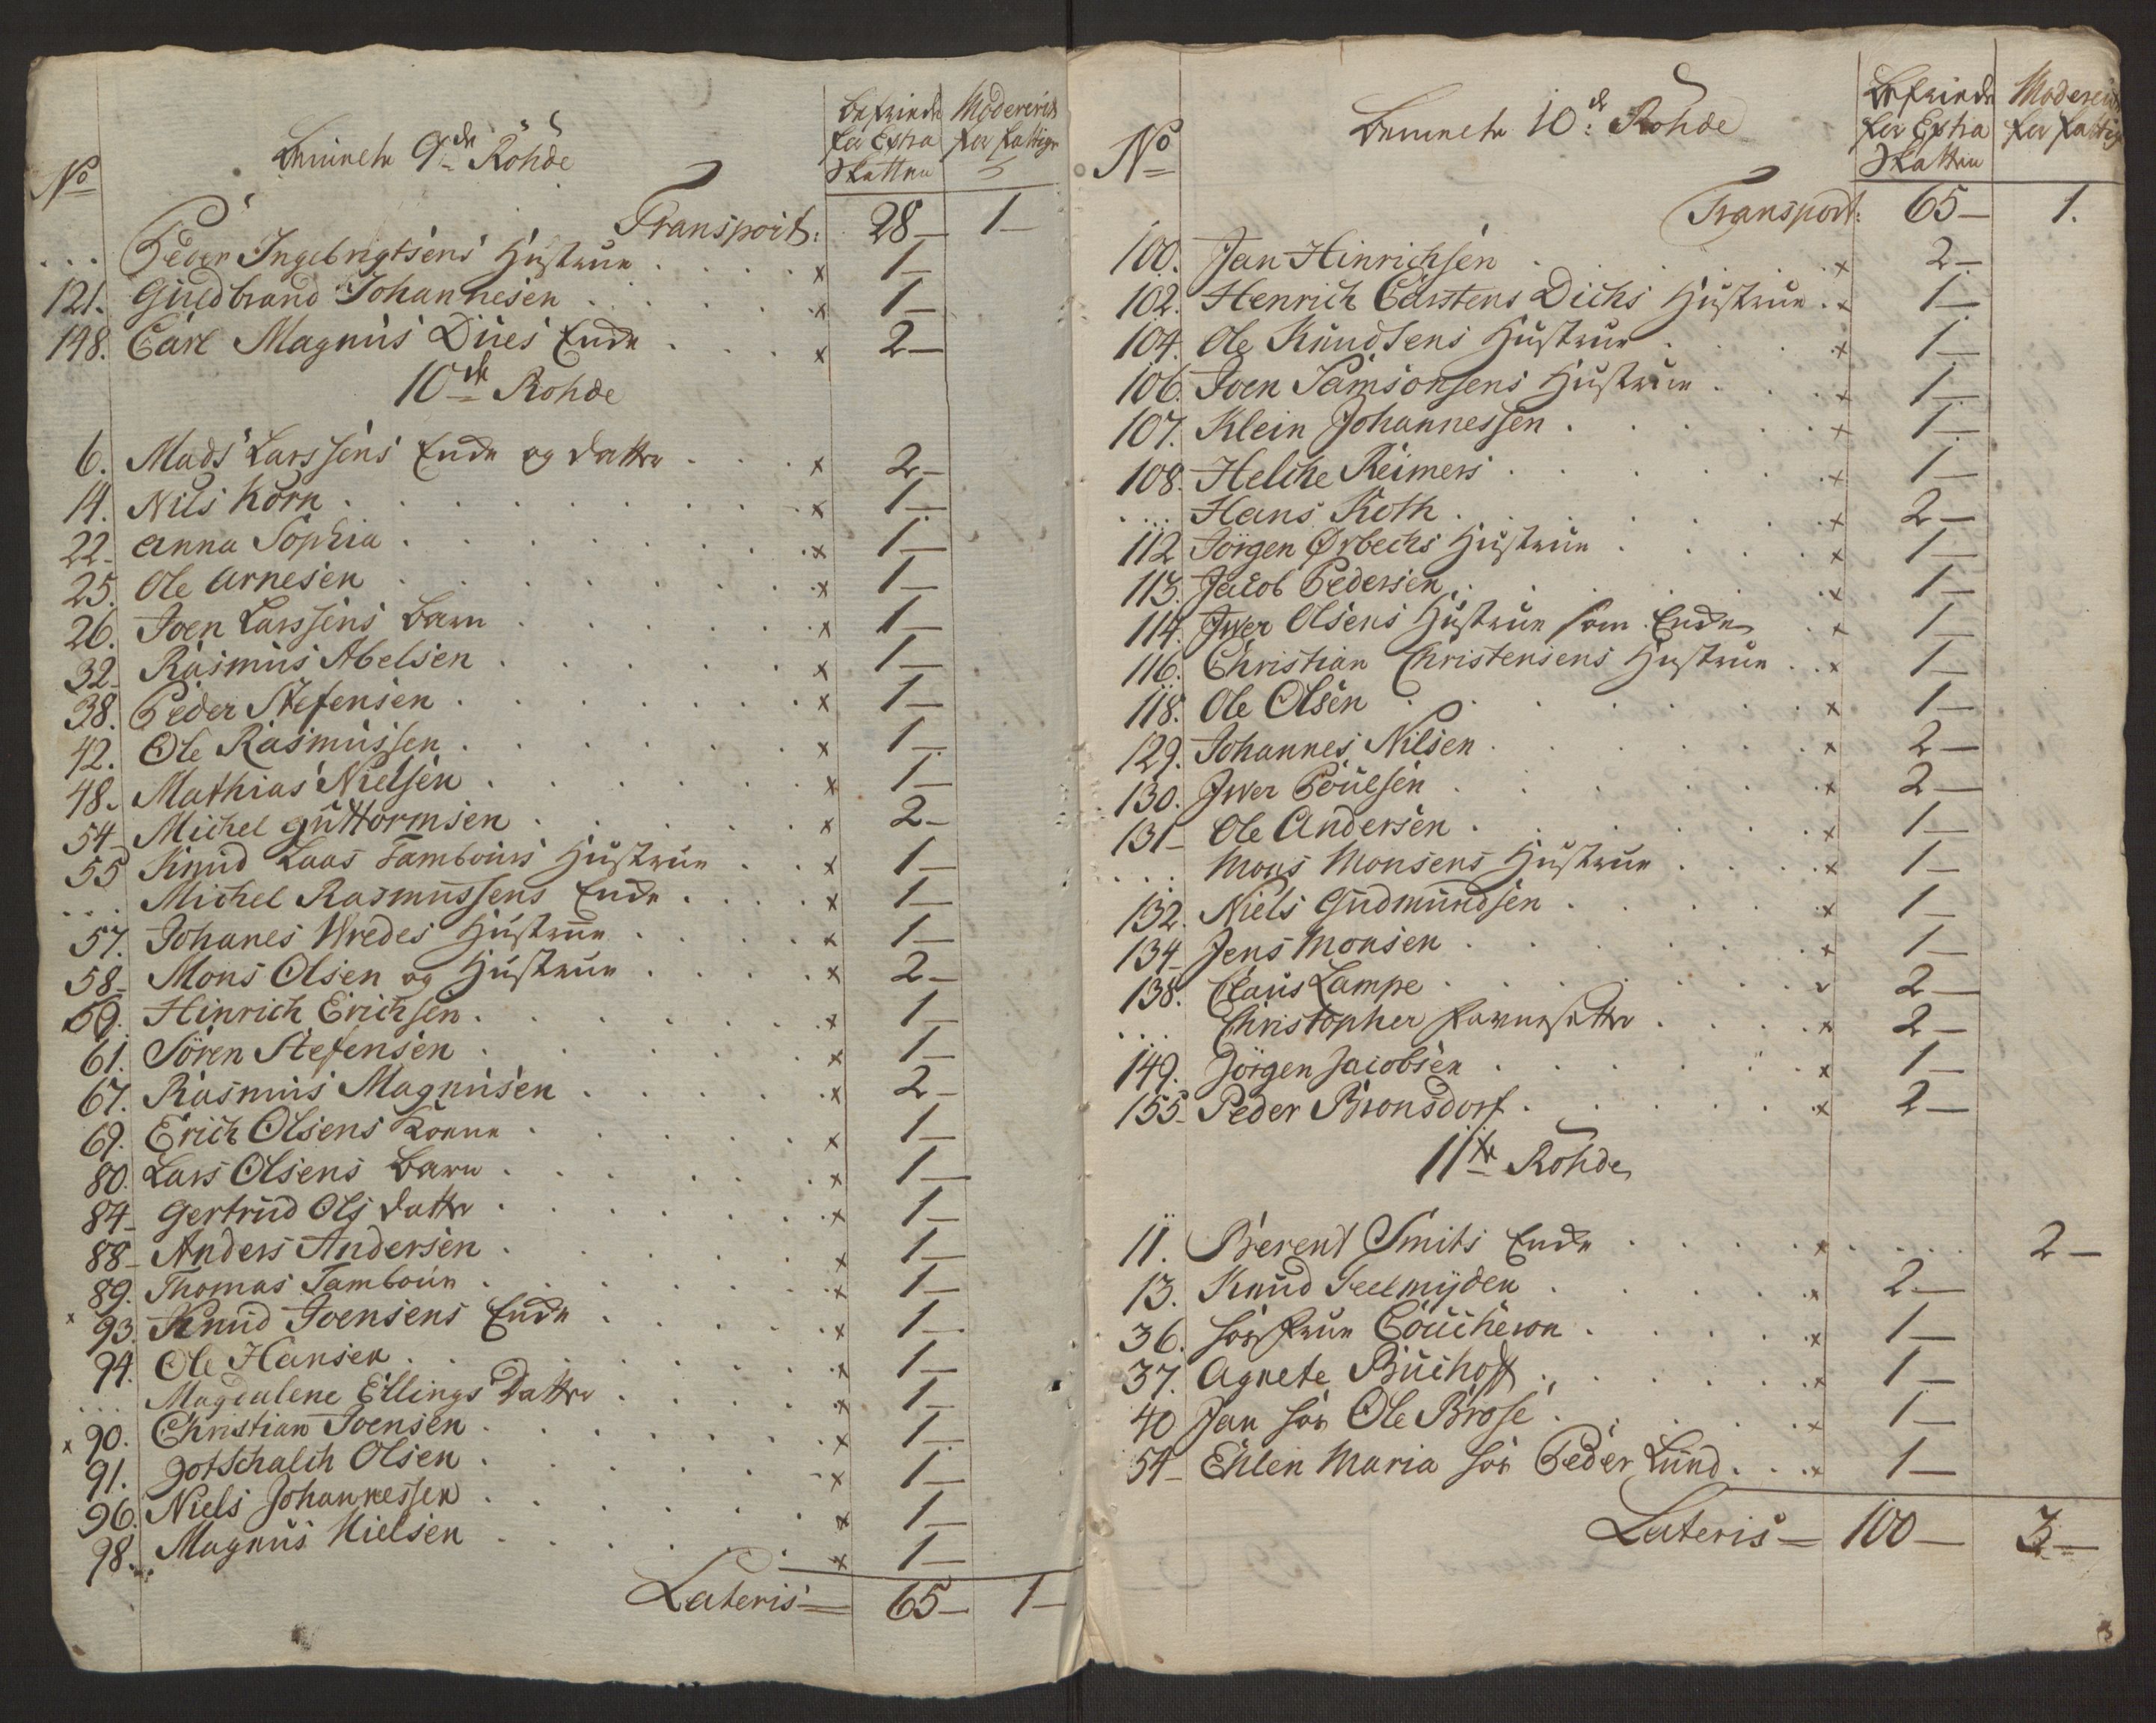 No
bemelte 9de Rohde
befriede for Extra Skatten
Modererede for fattige
Transport: 28 - 1 -
... Peder Ingebrigtsens Hustrue . . . . x 1 -
121. Guldbrand Johannesen . . . . x 1 -
148. Carl Magnus Dües Enke . . . x 2 -
10de Rohde
6. Mads Larssens Enke og datter . . . x 2 -
14. Nils Korn . . . . x 1 -
22 - Anna Sophia . . . . x 1 -
25. Ole Arnesen . . . . x 1 -
26. Joen Larssens barn . . . . x 1 -
32 - Rasmus Abelsen . . . . x 1 -
38. Peder Stefensen . . . . x 1 -
42. Ole Rasmussen . . . . x 1 -
48. Mathias Nielsen . . . . x 1 -
54 Michel Guttormsen . . . . x 2 -
55 Knud Laas Tambours Hustrue . . x 1 -
... Michel Rasmussens Enke . . . . x 1 -
57. Johanes Wredes Hustrue . . . . x 1 -
58 - Mons Olsen og Hustrue . . . . x 2 -
59. Hinrich Erichsen . . . . x 1 -
61. Sören Stefensen . . . . x 1 -
67. Rasmus Magnusen . . . . x 2 -
69. Erich Olsens Kone . . . . x 1 -
80. Lars Olsens barn . . . . x 1 -
84 - Gertrud Ols datter . . . . x 1 -
88 - Anders Andersen . . . . x 1 -
89. Thomas Tambour . . . . x 1 -
x 93. Knud Joensens Enke . . . . x 1 -
94. Ole Hansen . . . . x 1 -
... Magdalene Ellings Datter . . . . x 1 -
x 90. Christian Joensen . . . . x 1 -
91. Gotschalch Olsen . . . . x 1 -
96. Niels Johannessen . . . . x 1 -
98. Magnus Nielsen . . . . x 1 -
Lateris = 65 - 1 -
No
bemelte 10de Rohde
Befriede for Extra Skatten
Modererede for fattige
Transport: 65 - 1.
100. Jan Hinrichsen . . . . x 2 -
102. Henrich Carstens Dichs Hustrue . x 1 -
104. Ole Knudsens Hustrue . . . . x 1 -
106. Joen Samsonsens Hustrue . . . . x 1 -
107. Klein Johannessen . . . . x 1 -
108. Helche Reimers . . . . x 1 -
.... Hans Koth . . . . x 2 -
112 Jörgen Ørbechs Hustrue . . . . x 1 -
113. Jacob Pedersen . . . . x 1 -
114. Jwer Olsens Hustrue som Enke . . x 1 -
116. Christian Christensens Hustrue . . x 1 -
118. Ole Olsen . . . . x 1 -
129. Johannes Nilsen . . . . x 2 -
130. Jwer Poulsen . . . . x 2 -
131 - Ole Andersen . . . . x 1 -
.... Mons Monsens Hustrue . . . . x 1 -
132. Niels Gudmundsen . . . . x 1 -
134 - Jens Monsen . . . . x 1 -
138. Claus Lampe . . . . v 2 -
.... Christopher . . . . x 2 -
149. Jörgen Jacobsen . . . . x 1 -
155 - Peder Bronsdorf . . . . x 2 -
11te Rohde
11. Berent Smits Enke . . . . x . . . . 2 -
13. Knud Seelmyden . . . . x 2 -
36. hos frue Coucheron . . . . x 1 -
37. Agnete Buchoff . . . . x 1 -
40 Jan hos Ole Brose . . . . x 1 -
54 - Ehlen Maria hos Peder Lund . . . x 1 -
Lateris = 100 - 3 -